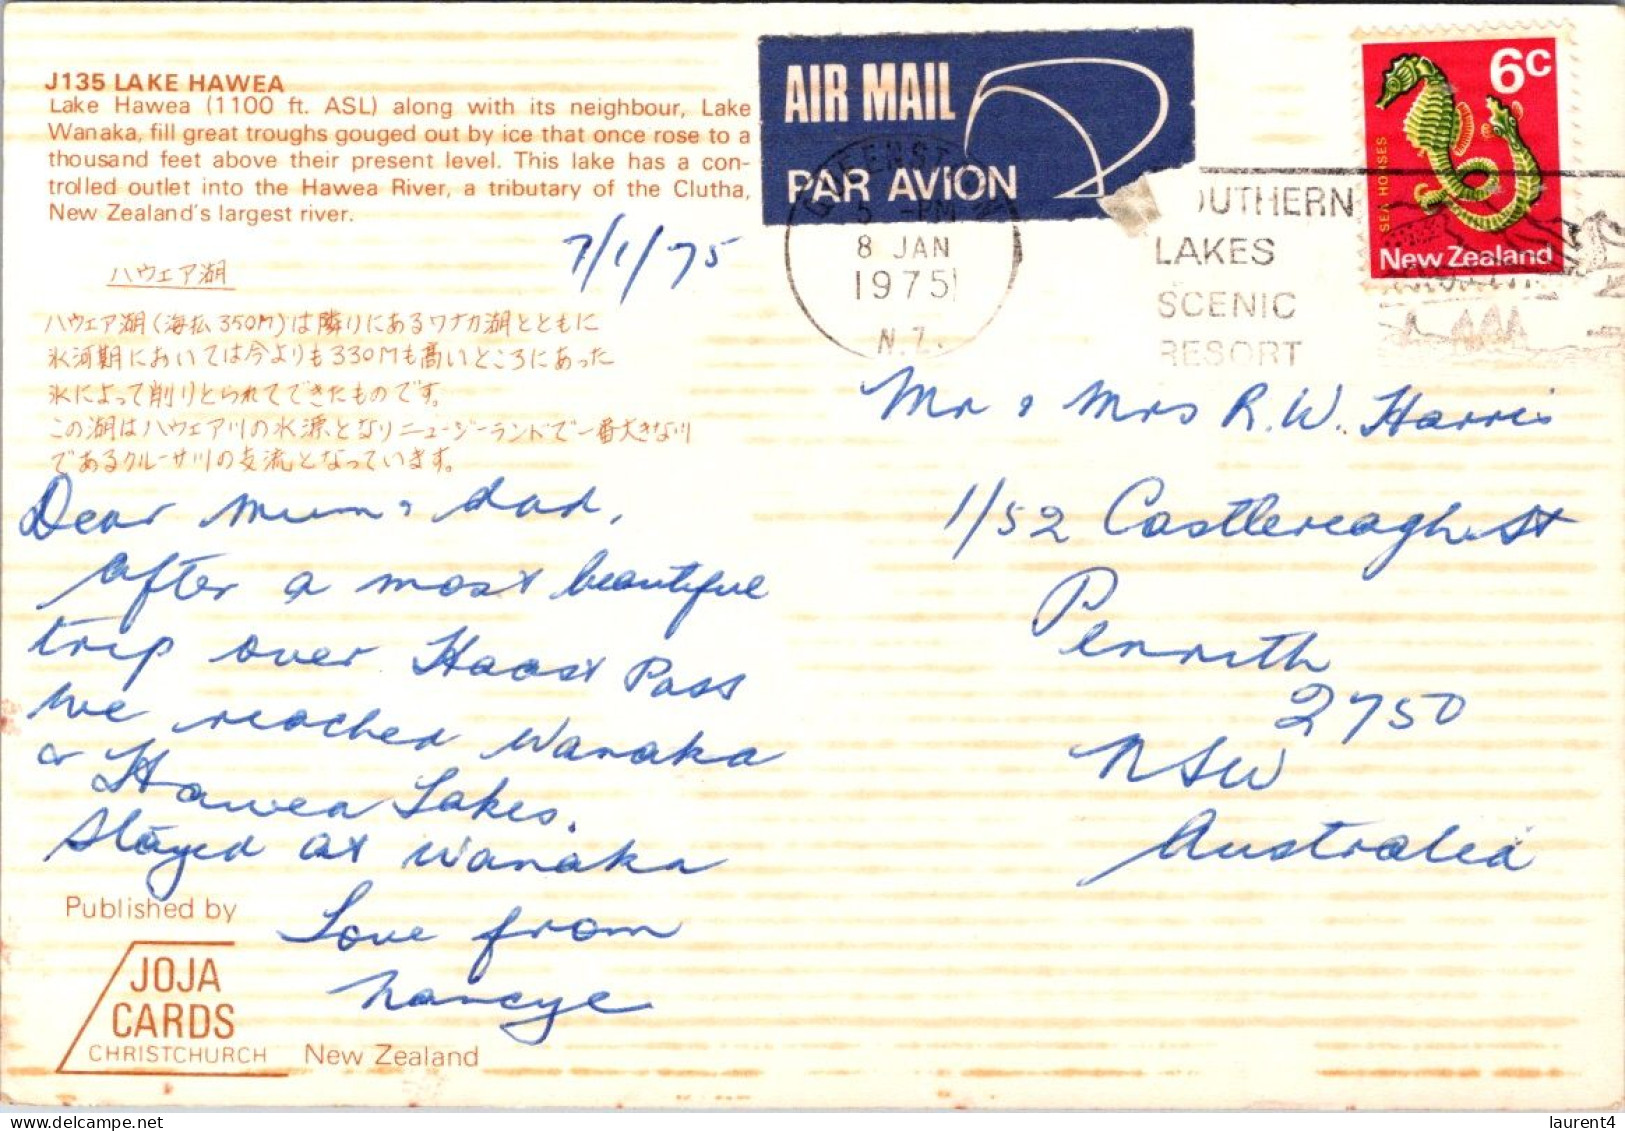 J135 LAKE HAWEA
Lake Hawea (1100 ft. ASL) along with its neighbour, Lake
Wanaka, fill great troughs gouged out by ice that once rose to a
thousand feet above their present level. This lake has a con-
trolled outlet into the Hawea River, a tributary of the Clutha,
New Zealand's largest river.
7/1/75
ハウェア湖
ハウェア湖(海抜350M)は隣りにあるワナカ湖とともに
氷河期においては今よりも330Mも高いところにあった
氷によって削りとられてできたものです。
この湖はハウェア川の水源となりニュージーランドで一番大きな川
であるクルーサ川の支流となっています。
Dear Mum & Dad,
After a most beautiful
trip over Haast Pass
we reached Wanaka
& Hawea Lakes.
Stayed at Wanaka
Love from
Nancye
Published by
JOJA
CARDS
CHRISTCHURCH
New Zealand
AIR MAIL
PAR AVION
QUEENSTOWN
5 -PM
8 JAN
1975
N.Z.
OUTHERN
LAKES
SCENIC
RESORT
6c
SEA HORSES
New Zealand
Mr & Mrs R.W. Harris
1/52 Castlereagh St
Penrith
2750
NSW
Australia
laurent4